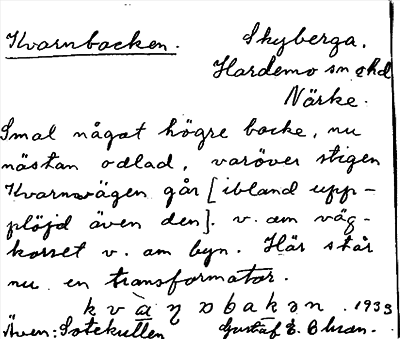 Kvarnbacken. Skyberga.
Hardemo sn ohd
Närke.
Smal något högre backe, nu
nästan odlad, varöver stigen
Kvarnvägen går [ibland upp-
plöjd även den]. v. om väg-
korset v. om byn. Här står
nu en transformator.
1933
Även: Sotekullen Gustaf E. Olsson.